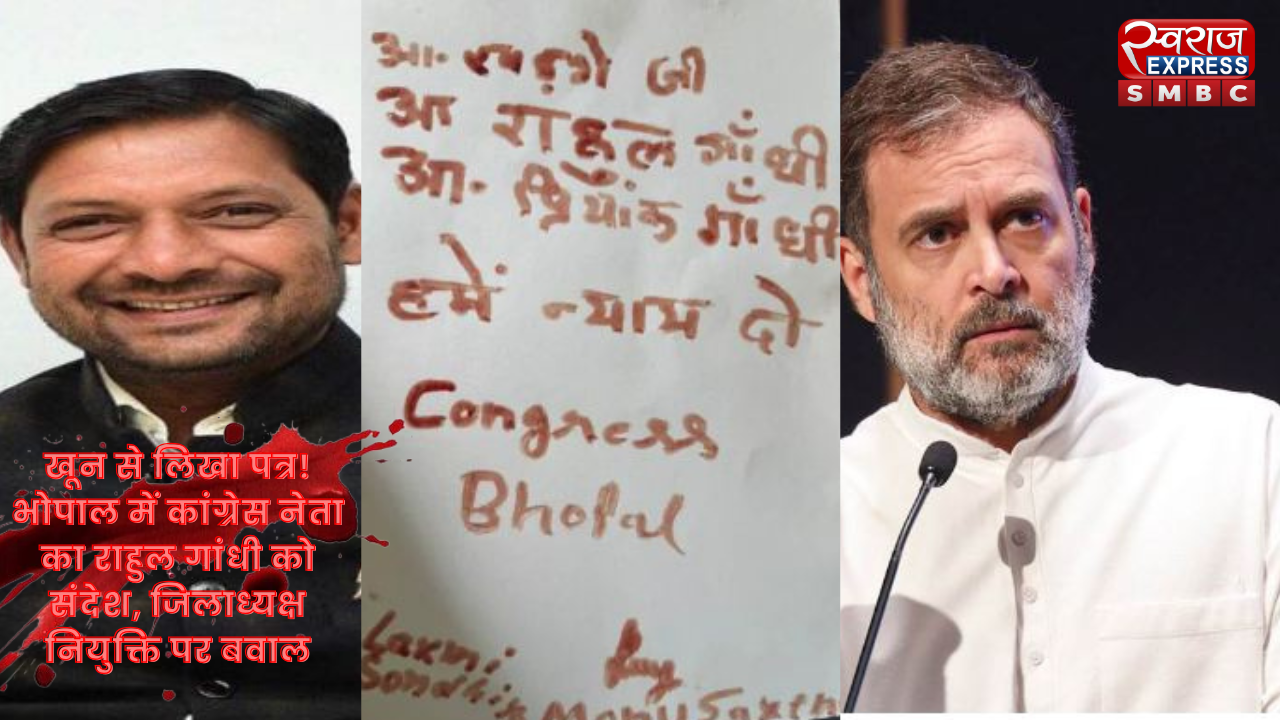 स्वराज
EXPRESS
SMBC
आ. खड़गे जी
आ राहुल गाँधी
आ. प्रियांक गाँधी
हमें न्याय दो
Congress
Bhopal
Laxmi
खून से लिखा पत्र!
भोपाल में कांग्रेस नेता
का राहुल गांधी को
संदेश, जिलाध्यक्ष
नियुक्ति पर बवाल